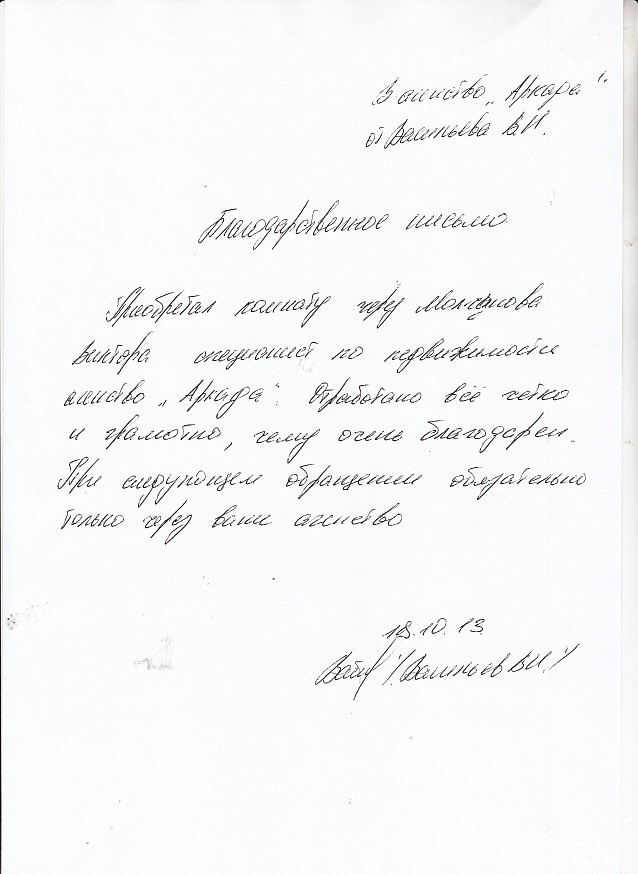 В агенство „Аркада".
от Васильева В.И.
Благодарственное письмо.
Приобретал комнату через Молчанова
Виктора специалист по недвижимости
агенство „Аркада". Отработано всё четко
и грамотно, чему очень благодарен.
При следующем обращении обязательно
только через ваше агенство
18.10.13.
/Васильев В.И./